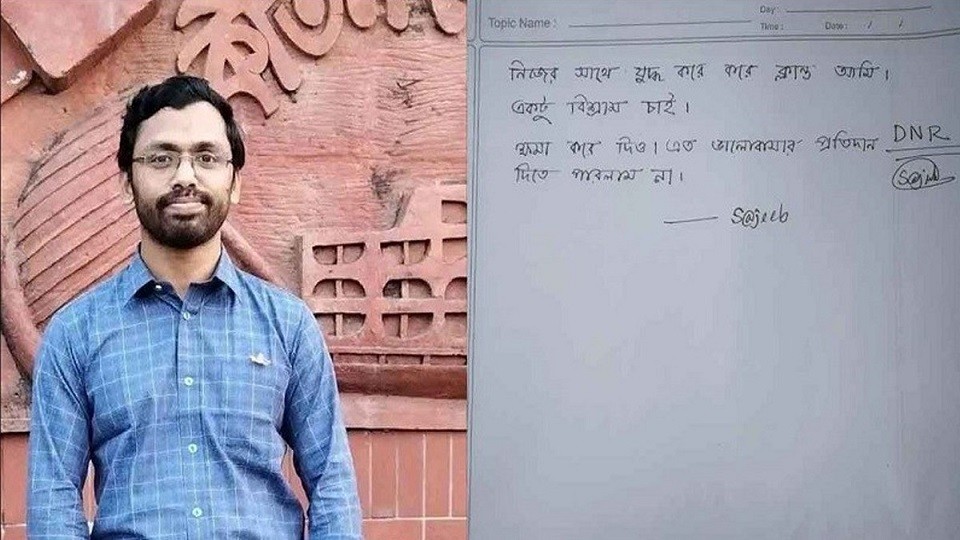 Topic Name :
Day :
Time :
Date : / /
নিজের সাথে যুদ্ধ করে করে ক্লান্ত আমি।
একটু বিশ্রাম চাই।
ক্ষমা করে দিও। এত ভালোবাসার প্রতিদান
দিতে পারলাম না।
DNR
S@jeeb
— S@jeeb